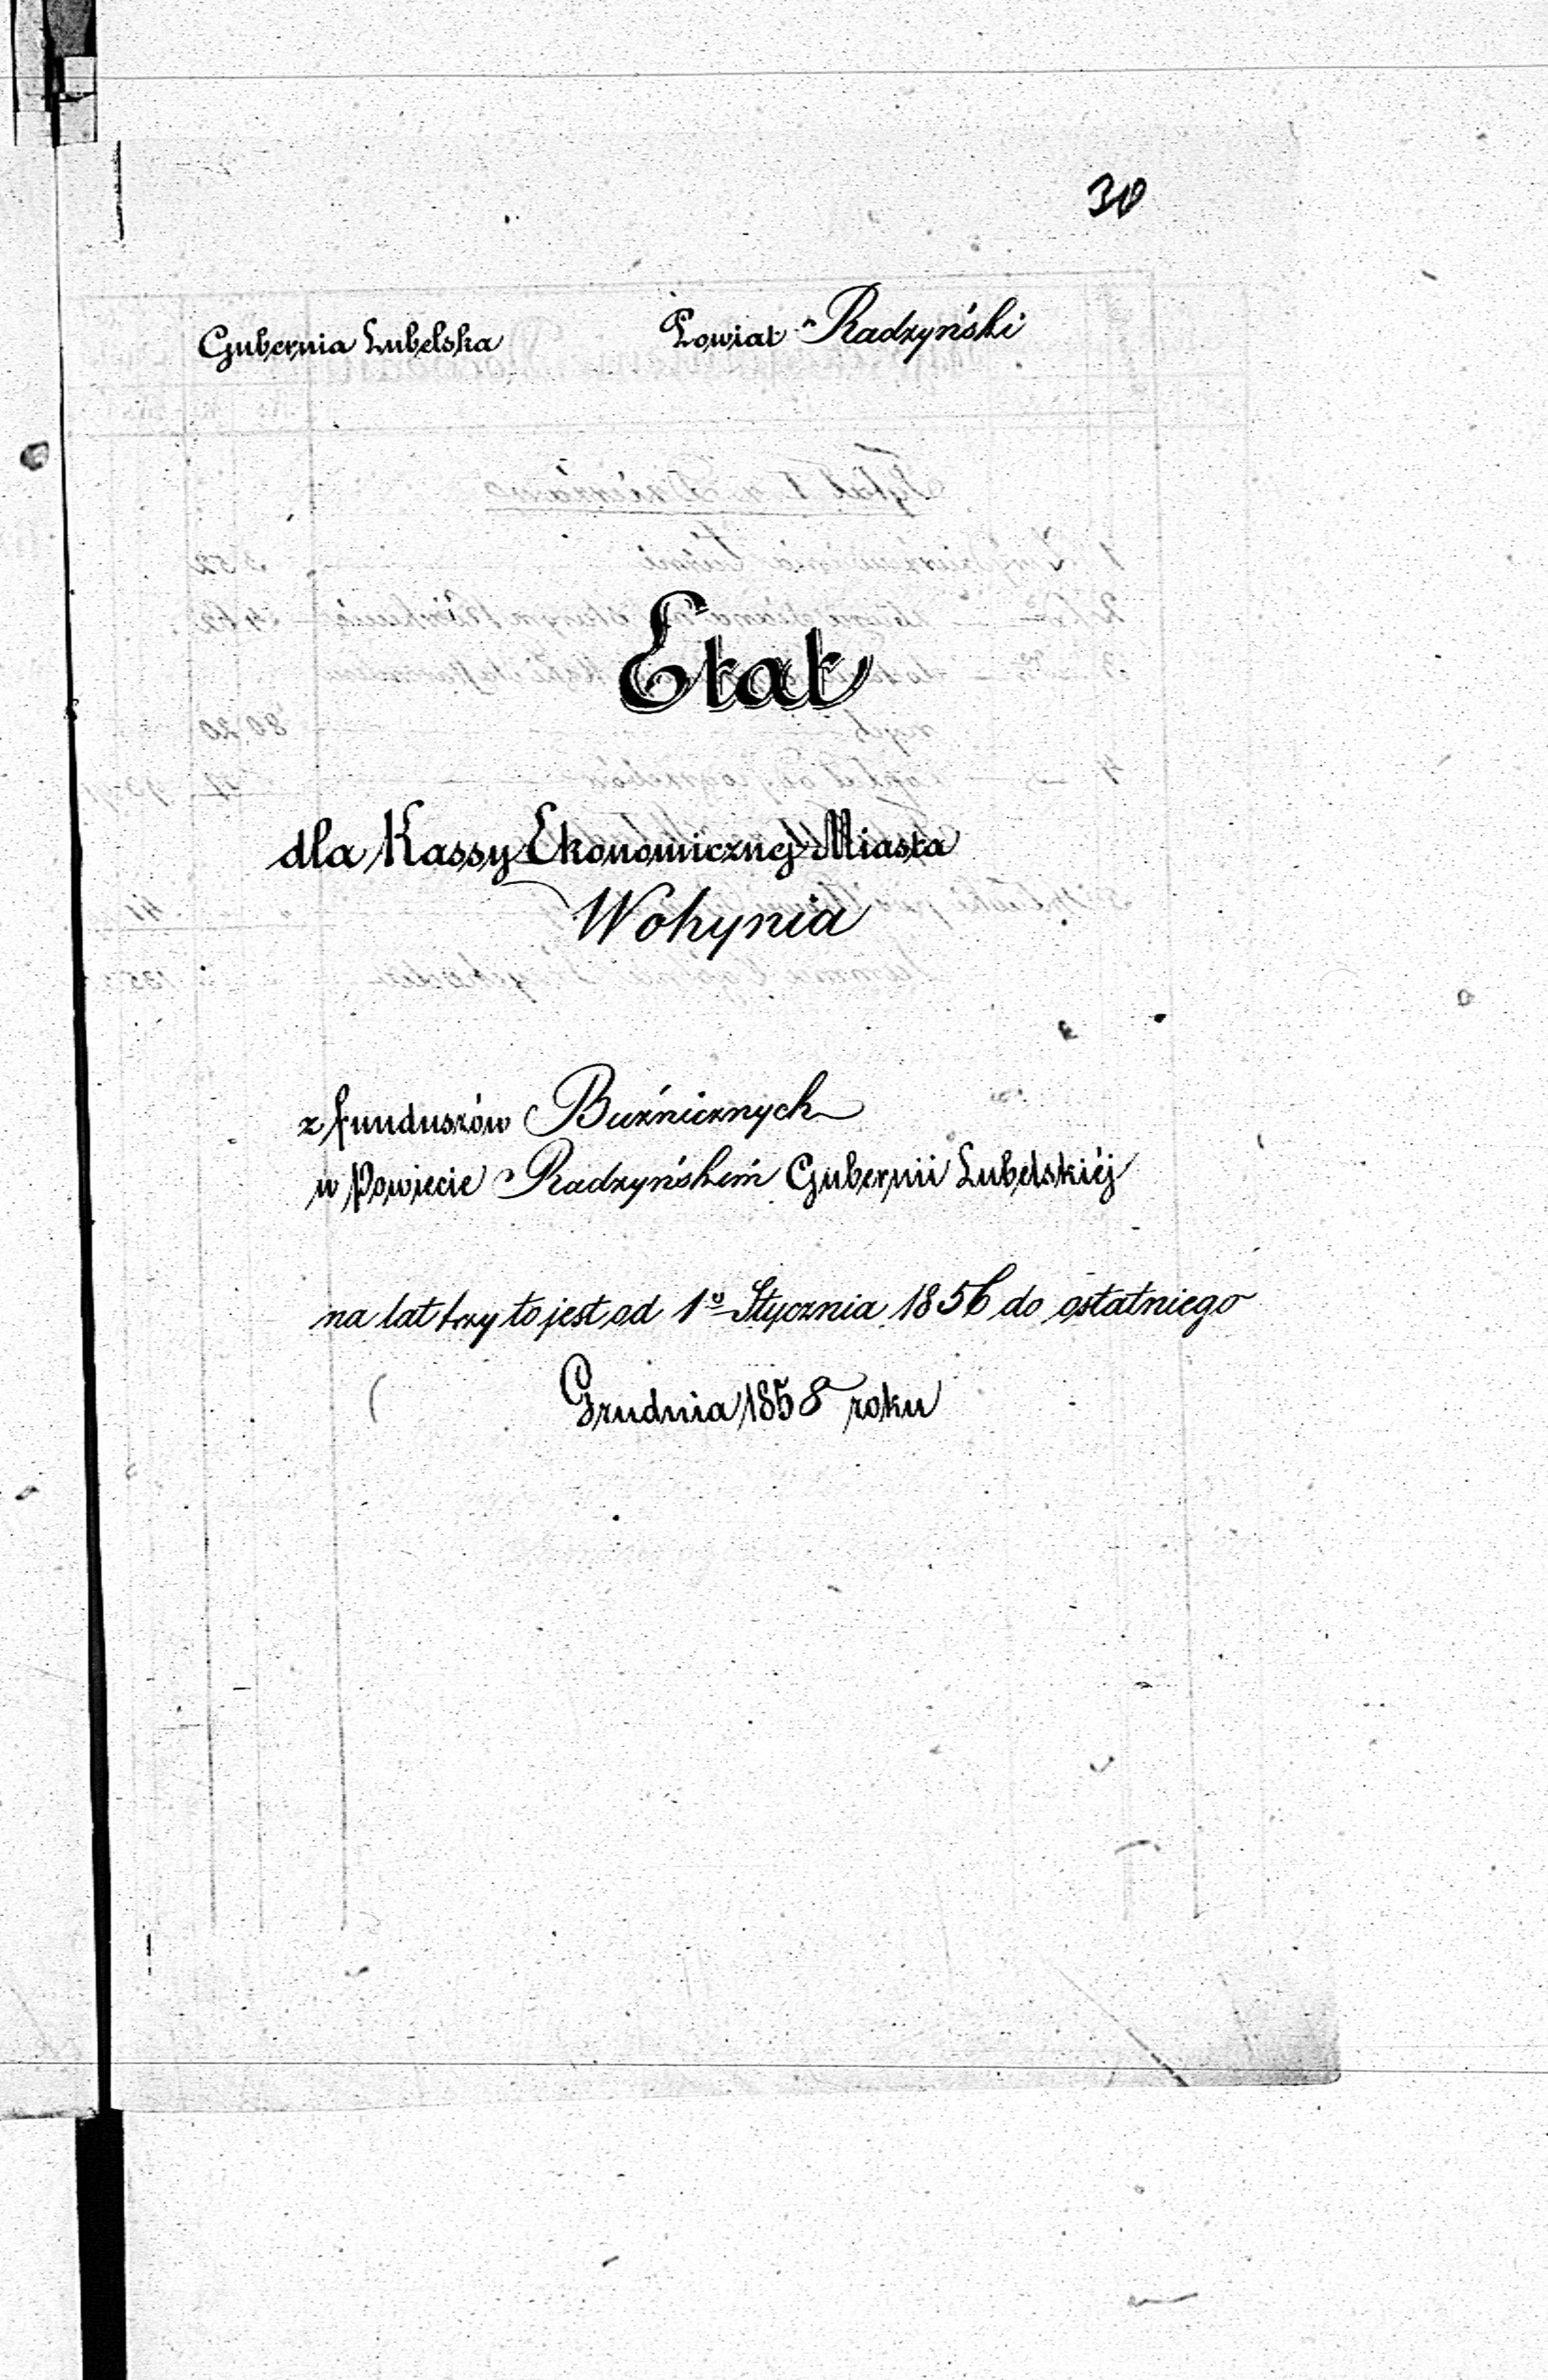 30
Gubernia Lubelska Powiat Radzyński
Etat
dla Kassy Ekonomicznej Miasta
Wohynia
z funduszów Bużnicznych
w Powiecie Radzyńskim Gubernii Lubelskiéj
na lat trzy to jest od 1º Stycznia 1856 do ostatniego
Grudnia 1858 roku